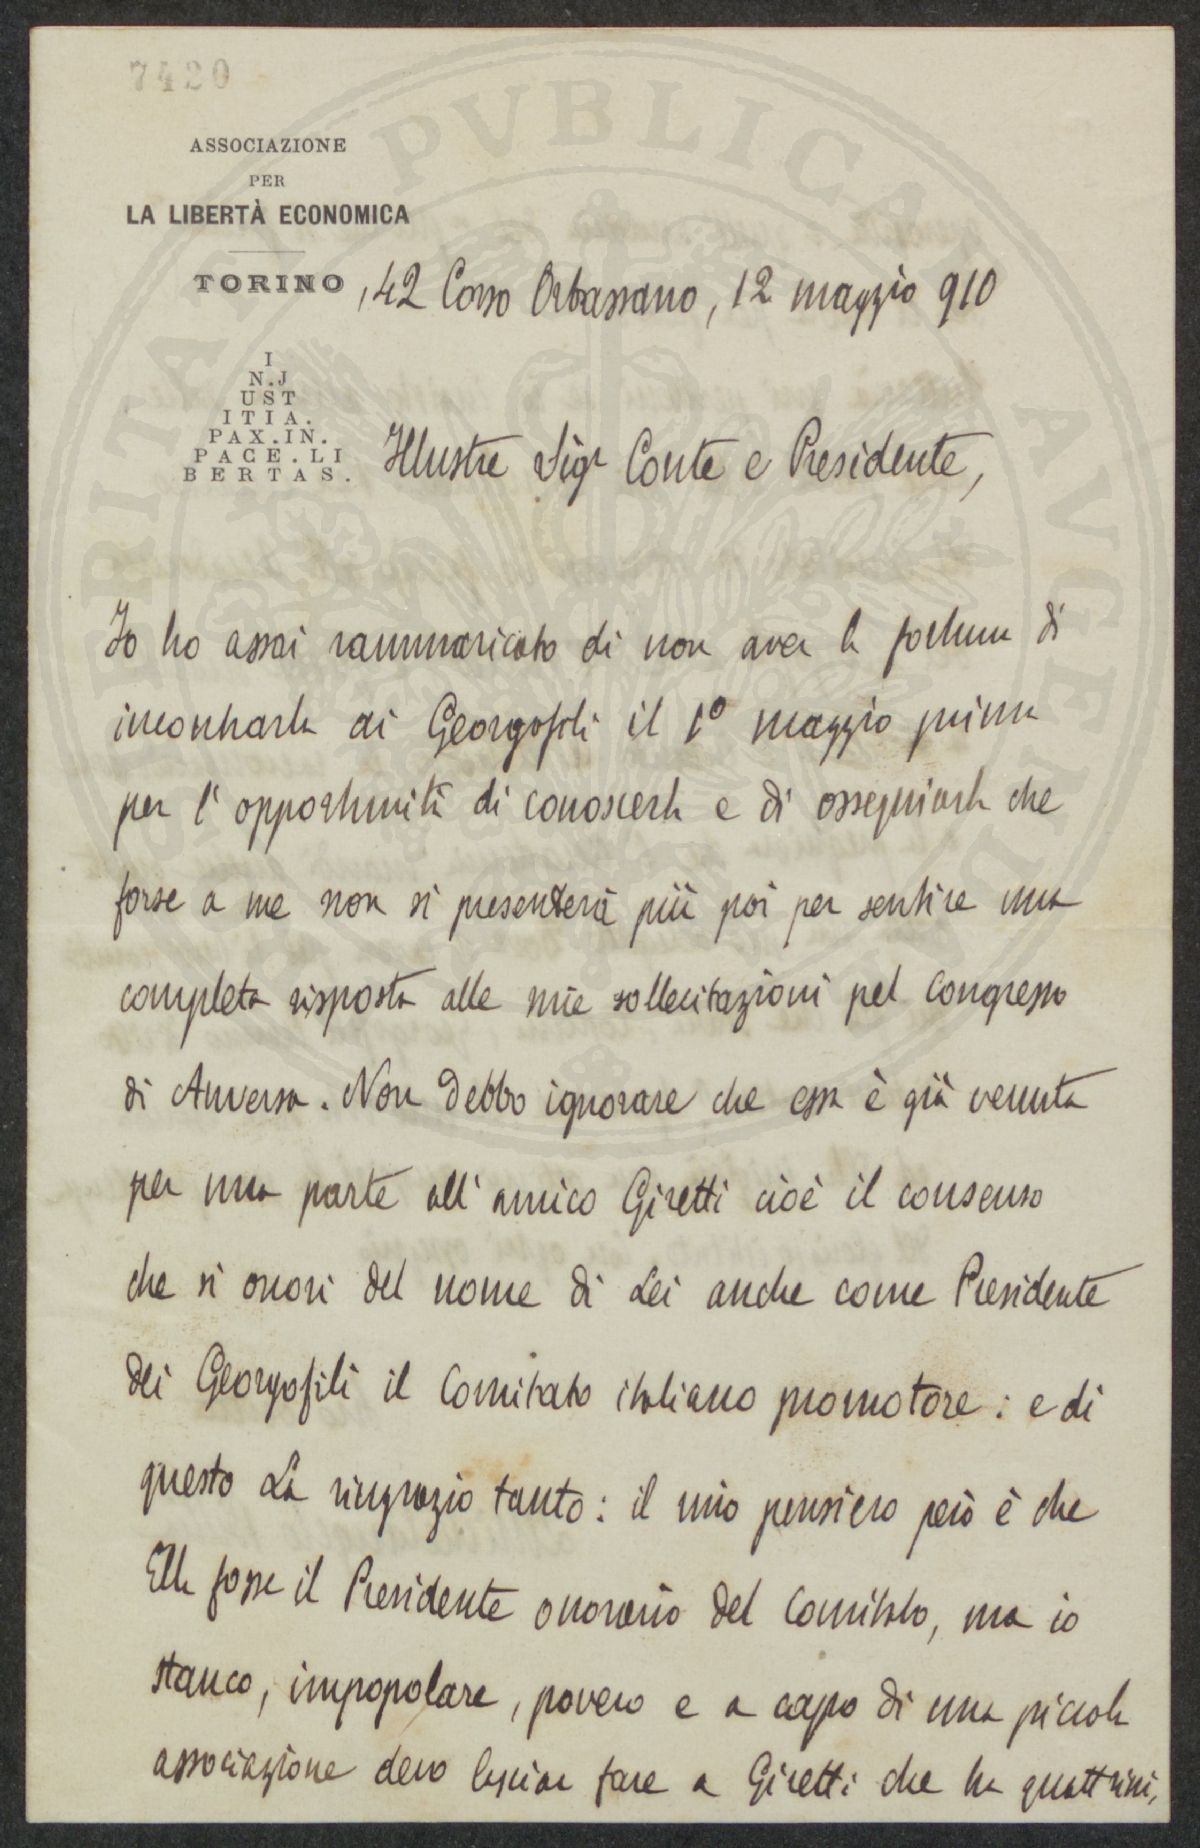 7420
ASSOCIAZIONE
PER
LA LIBERTÀ ECONOMICA
TORINO, 42 Corso Orbassano, 12 maggio 910
I
N.J
UST
ITIA.
PAX.IN.
PACE.LI
BERTAS.
Illustre Sigr Conte e Presidente,
Io ho assai rammaricato di non aver la fortuna di
incontrarla ai Georgofili il 1º maggio prima
per l'opportunità di conoscerla e di ossequiarla che
forse a me non si presenterà più poi per sentire una
completa risposta alle mie sollecitazioni pel Congresso
di Anversa. Non debbo ignorare che essa è già venuta
per una parte all'amico Giretti cioè il consenso
che si onori del nome di Lei anche come Presidente
dei Georgofili il Comitato italiano promotore: e di
questo La ringrazio tanto: il mio pensiero però è che
Ella fosse il Presidente onorario del Comitato, ma io
stanco, impopolare, povero e a capo di una piccola
associazione devo lasciar fare a Giretti che ha quattrini,